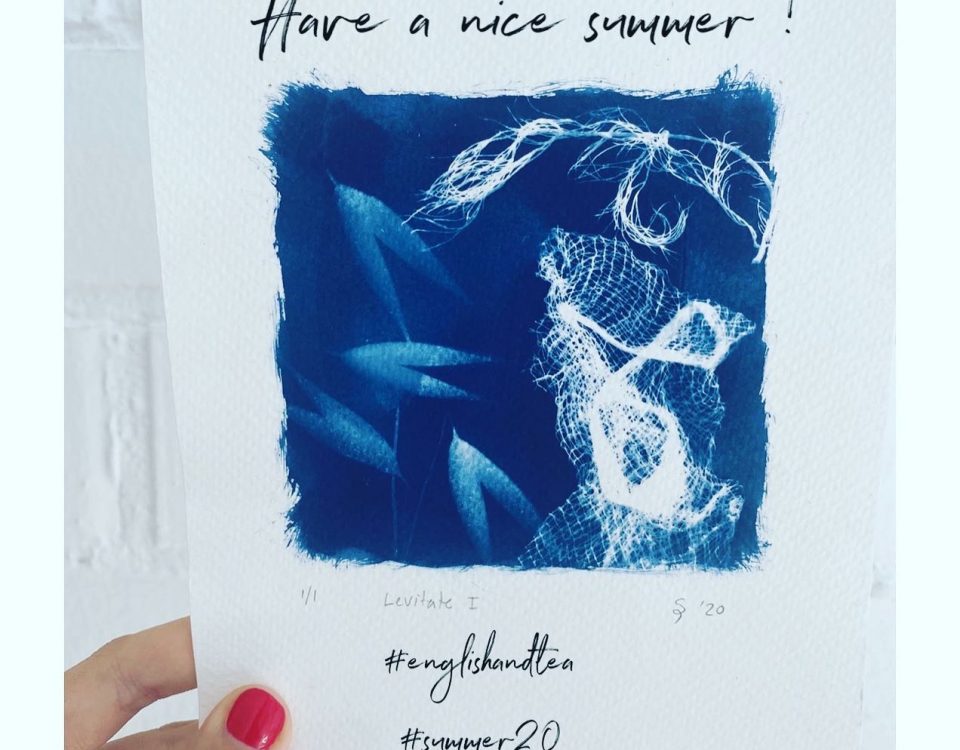 Have a nice summer !
1/1 Levitate I '20
#englishandtea
#summer20